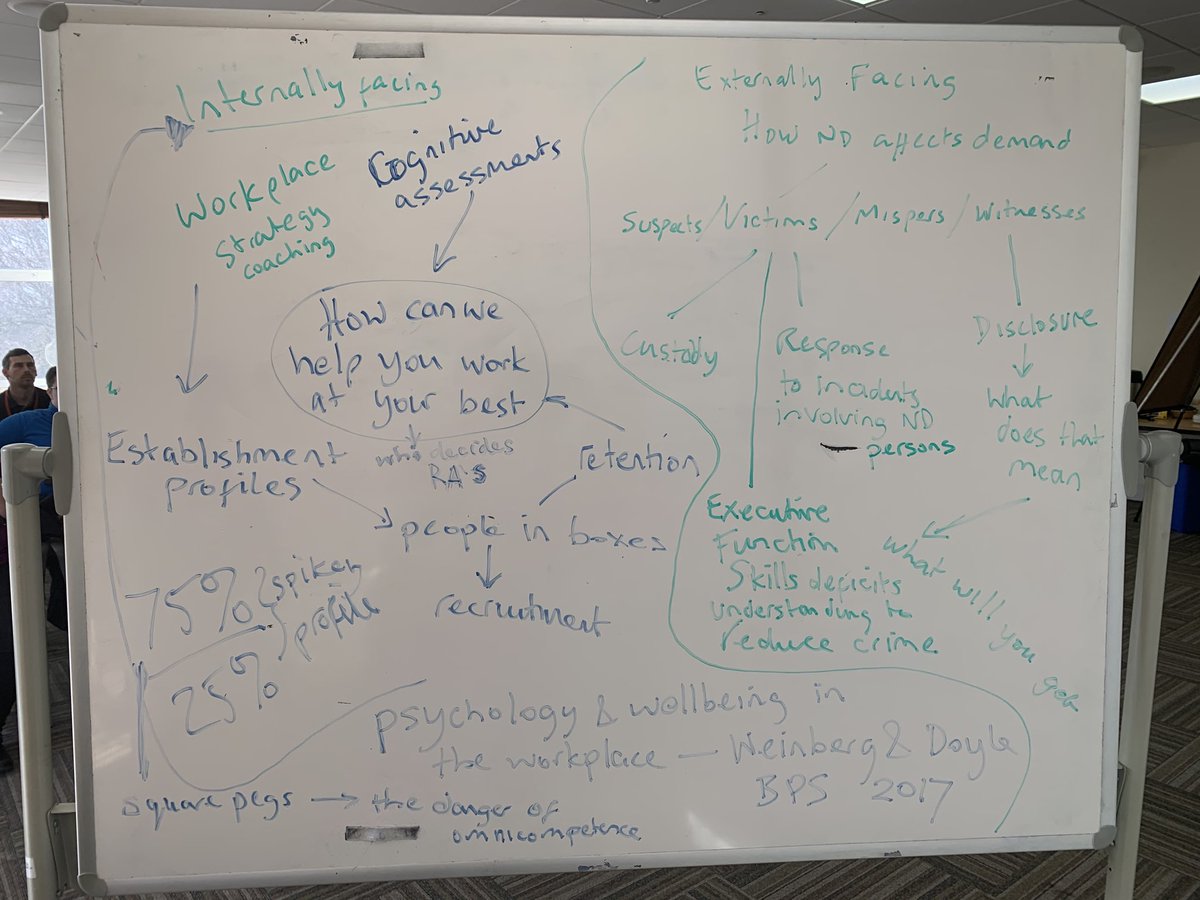 Internally facing
Workplace
strategy
coaching
Cognitive
assessments
How can we
help you work
at your best
who decides
RA's
Establishment
profiles
retention
people in boxes
recruitment
75% spikey
profile
25%
psychology & wellbeing in
the workplace — Weinberg & Doyle
BPS 2017
square pegs → the danger of
omnicompetence
Externally Facing
How ND affects demand
Suspects / Victims / Mispers / Witnesses
Custody
Response
to incidents
involving ND
persons
Disclosure
What
does that
mean
What will you get
Executive
Function
Skills deficits
understanding to
reduce crime